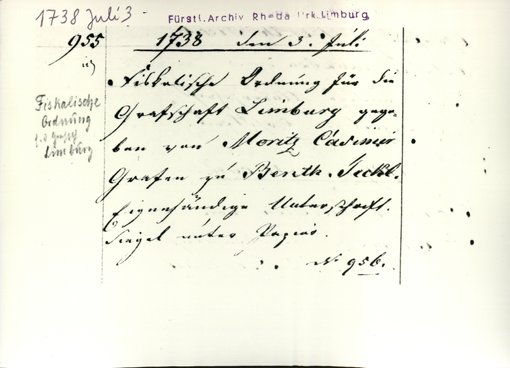 1738 Juli 3
Fürstl. Archiv Rheda Urk. Limburg
955
1738 den 3. Juli
Fiskalische Ordnung für die
Grafschaft Limburg gege-
ben von Moritz Casimir
Grafen zu Benth. Teckl.
Eigenhändige Unterschrift.
Siegel unter Papier.
N. 956.
Fiskalische
Ordnung
Limburg